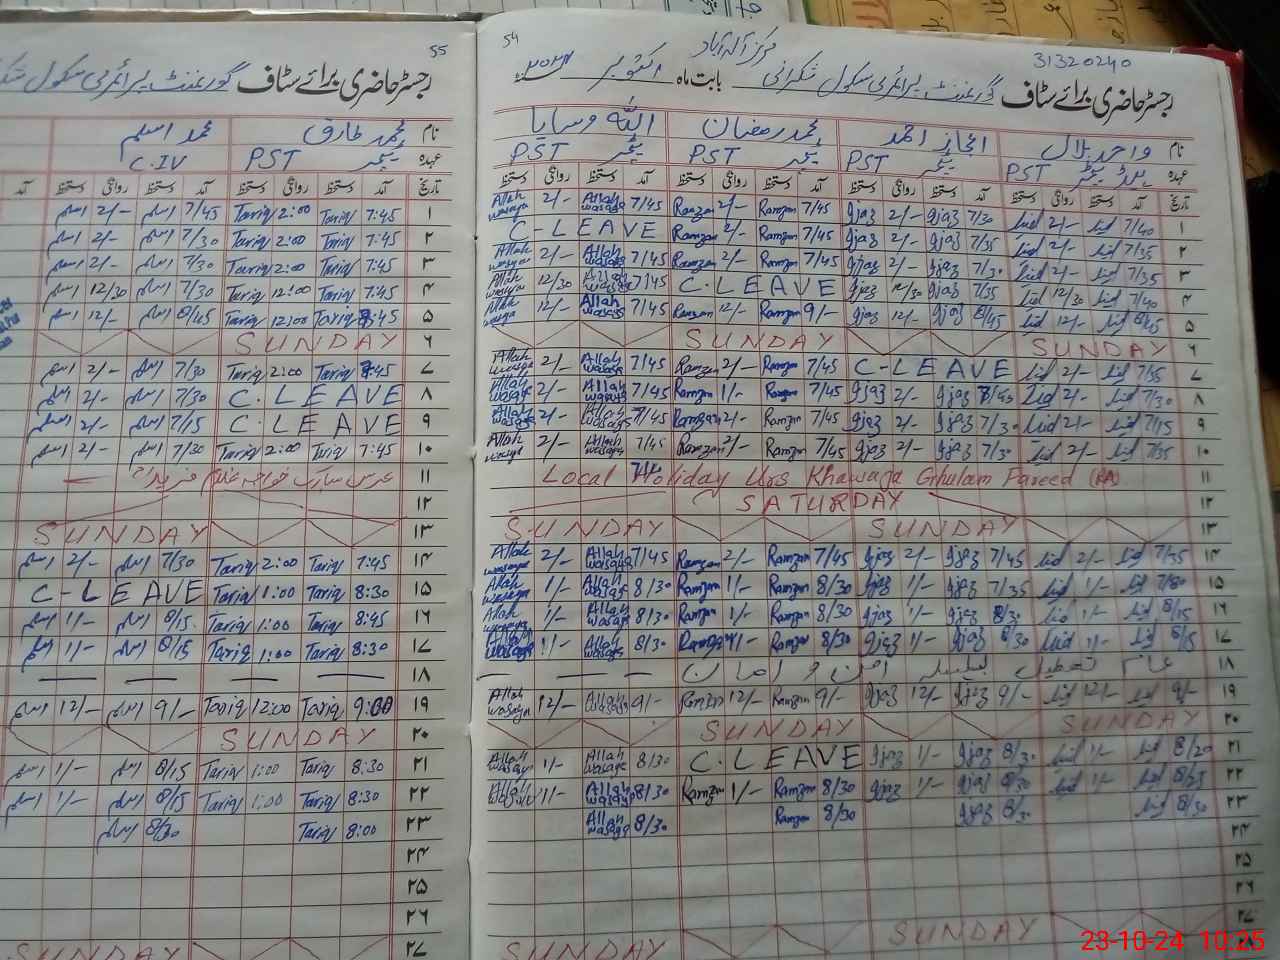 54
مرکز الہ آباد
31320240
رجسٹر حاضری برائے سٹاف گورنمنٹ پرائمری سکول شکرانی بابت ماہ اکتوبر ۲۰۲۴ء
نام واحد بلال اعجاز احمد محمد رمضان اللہ وسایا
عہدہ ہیڈ ٹیچر PST ٹیچر PST ٹیچر PST ٹیچر PST
تاریخ آمد دستخط روانگی دستخط آمد دستخط روانگی دستخط آمد دستخط روانگی دستخط آمد دستخط روانگی دستخط
۱ 7/40 2/- 7/30 Ijaz 2/- Ijaz 7/45 Ramzan 2/- Ramzan 7/45 Allah wasaya 2/- Allah wasaya
۲ 7/35 2/- 7/35 Ijaz 2/- Ijaz 7/45 Ramzan 2/- Ramzan C-LEAVE
۳ 7/35 2/- 7/30 Ijaz 2/- Ijaz 7/45 Ramzan 2/- Ramzan 7/45 Allah wasaya 2/- Allah wasaya
۴ 7/40 12/30 7/35 Ijaz 12/30 Ijaz C-LEAVE 7/45 Allah wasaya 12/30 Allah wasaya
۵ 8/45 12/- 8/45 Ijaz 12/- Ijaz 9/- Ramzan 12/- Ramzan 7/45 Allah wasaya 12/- Allah wasaya
۶ SUNDAY SUNDAY
۷ 7/35 2/- C-LEAVE 7/45 Ramzan 2/- Ramzan 7/45 Allah wasaya 2/- Allah wasaya
۸ 7/30 2/- Ijaz 2/- Ijaz 7/45 Ramzan 1/- Ramzan 7/45 Allah wasaya 2/- Allah wasaya
۹ 7/15 2/- 7/30 Ijaz 2/- Ijaz 7/45 Ramzan 2/- Ramzan 7/45 Allah wasaya 2/- Allah wasaya
۱۰ 7/35 2/- 7/30 Ijaz 2/- Ijaz 7/45 Ramzan 2/- Ramzan 7/45 Allah wasaya 2/- Allah wasaya
۱۱ Local Holiday Urs Khawaja Ghulam Fareed (RA)
۱۲ SATURDAY
۱۳ SUNDAY SUNDAY
۱۴ 7/35 2/- 7/45 Ijaz 2/- Ijaz 7/45 Ramzan 2/- Ramzan 7/45 Allah wasaya 2/- Allah wasaya
۱۵ 1/- 7/35 Ijaz 1/- Ijaz 8/30 Ramzan 1/- Ramzan 8/30 Allah wasaya 1/- Allah wasaya
۱۶ 8/15 1/- 8/30 Ijaz 1/- Ijaz 8/30 Ramzan 1/- Ramzan 8/30 Allah wasaya 1/- Allah wasaya
۱۷ 8/15 1/- 8/30 Ijaz 1/- Ijaz 8/30 Ramzan 1/- Ramzan 8/30 Allah wasaya 1/- Allah wasaya
۱۸ عام تعطیل بسلسلہ امن و امان
۱۹ 9/- 12/- 9/- Ijaz 12/- Ijaz 9/- Ramzan 12/- Ramzan 9/- Allah wasaya 12/- Allah wasaya
۲۰ SUNDAY SUNDAY
۲۱ 8/20 1/- 8/30 Ijaz 1/- Ijaz C.LEAVE 8/30 Allah wasaya 1/- Allah wasaya
۲۲ 1/- 8/30 Ijaz 1/- Ijaz 8/30 Ramzan 1/- Ramzan 8/30 Allah wasaya 1/- Allah wasaya
۲۳ 8/30 8/30 Ijaz 8/30 Ramzan 8/30 Allah wasaya
۲۴
۲۵
۲۶
۲۷ SUNDAY SUNDAY
55
رجسٹر حاضری برائے سٹاف گورنمنٹ پرائمری سکول
نام محمد طارق محمد اسلم
عہدہ ٹیچر PST C.IV
تاریخ آمد دستخط روانگی دستخط آمد دستخط روانگی دستخط آمد
۱ 7:45 Tariq 2:00 Tariq 7/45 اسلم 2/- اسلم
۲ 7:45 Tariq 2:00 Tariq 7/30 اسلم 2/- اسلم
۳ 7:45 Tariq 2:00 Tariq 7/30 اسلم 2/- اسلم
۴ 7:45 Tariq 12:00 Tariq 7/30 اسلم 12/30 اسلم
۵ 8:45 Tariq 12:00 Tariq 8/45 اسلم 12/- اسلم
۶ SUNDAY
۷ 7:45 Tariq 2:00 Tariq 7/30 اسلم 2/- اسلم
۸ C.LEAVE 7/30 اسلم 2/- اسلم
۹ C.LEAVE 7/15 اسلم 2/- اسلم
۱۰ 7:45 Tariq 2:00 Tariq 7/30 اسلم 2/- اسلم
۱۱ عرس مبارک خواجہ غلام فرید
۱۲
۱۳ SUNDAY
۱۴ 7:45 Tariq 2:00 Tariq 7/30 اسلم 2/- اسلم
۱۵ 8:30 Tariq 1:00 Tariq C-LEAVE
۱۶ 8:45 Tariq 1:00 Tariq 8/15 اسلم 1/- اسلم
۱۷ 8:30 Tariq 1:00 Tariq 8/15 اسلم 1/- اسلم
۱۸
۱۹ 9:00 Tariq 12:00 Tariq 9/- اسلم 12/- اسلم
۲۰ SUNDAY
۲۱ 8:30 Tariq 1:00 Tariq 8/15 اسلم 1/- اسلم
۲۲ 8:30 Tariq 1:00 Tariq 8/15 اسلم 1/- اسلم
۲۳ 8:00 Tariq 8/30 اسلم
۲۴
۲۵
۲۶
۲۷ SUNDAY
23-10-24 10:25